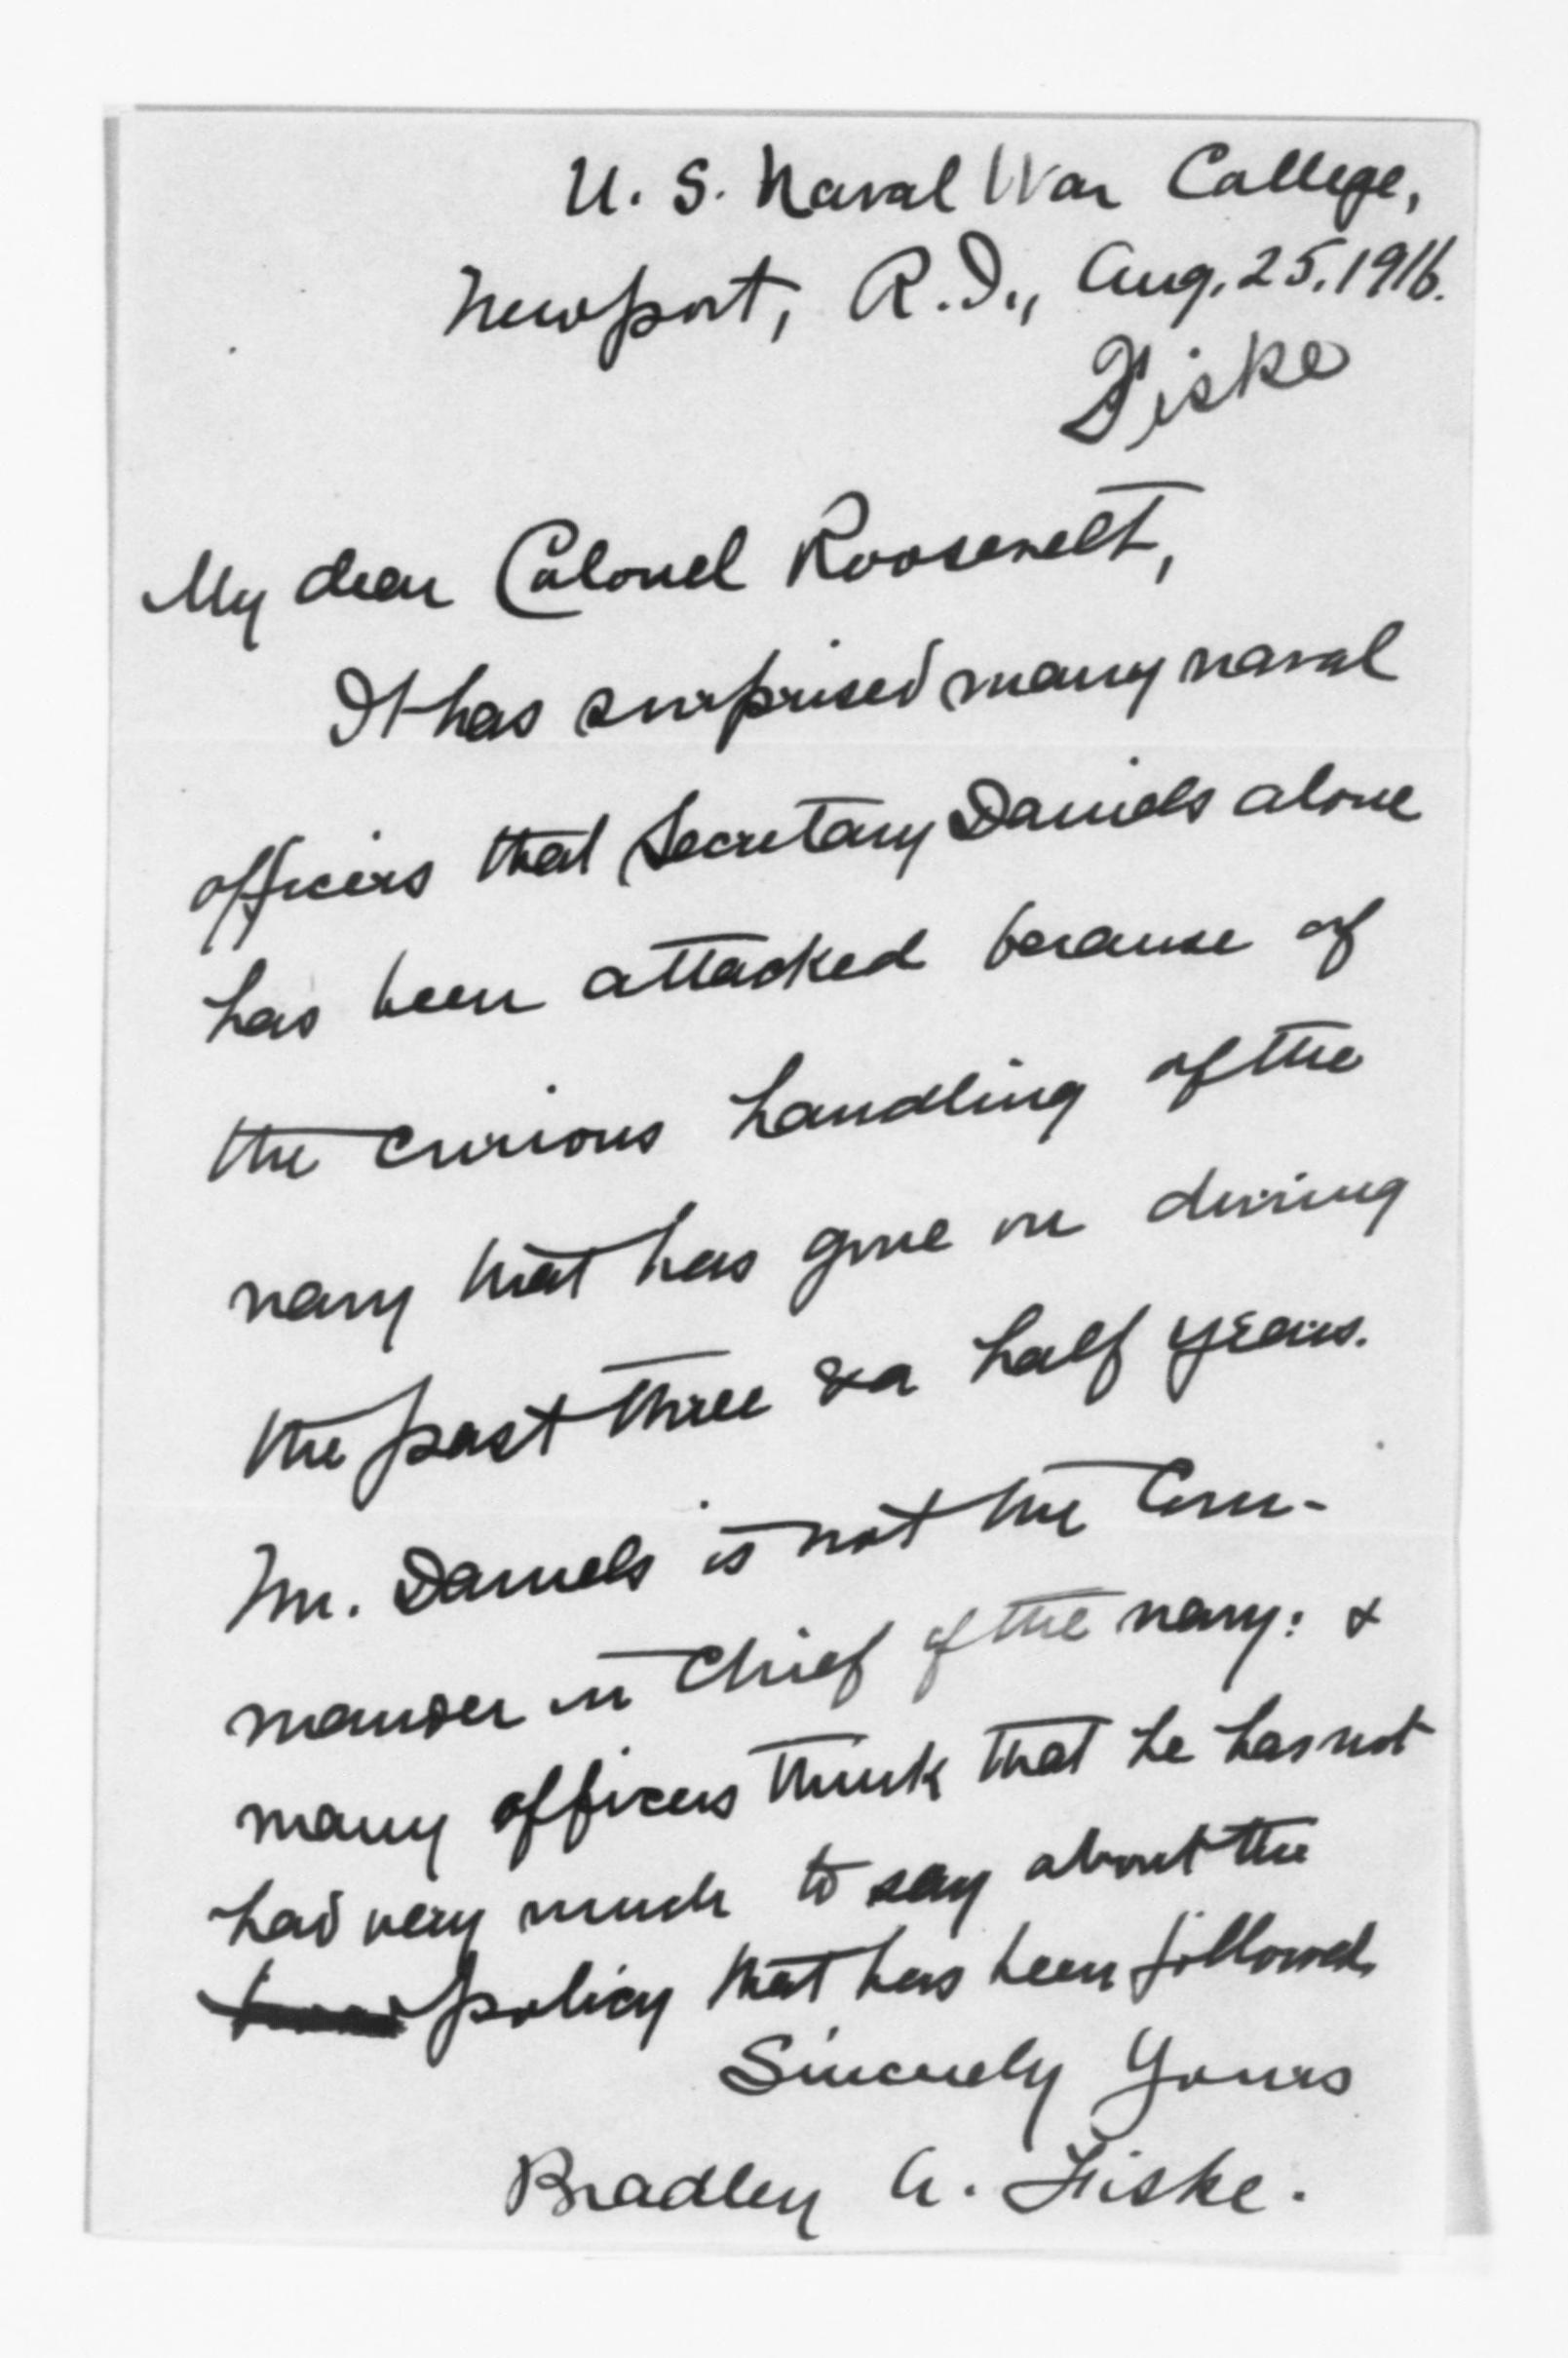 U. S. Naval War College,
Newport, R.I., Aug. 25. 1916.
Fiske
My dear Colonel Roosevelt,
It has surprised many naval
officers that Secretary Daniels alone
has been attacked because of
the curious handling of the
navy that has gone on during
the past three & a half years.
Mr. Daniels is not the Com-
mander in Chief of the navy: &
many officers think that he has not
had very much to say about the
policy that has been followed.
Sincerely Yours
Bradley A. Fiske.